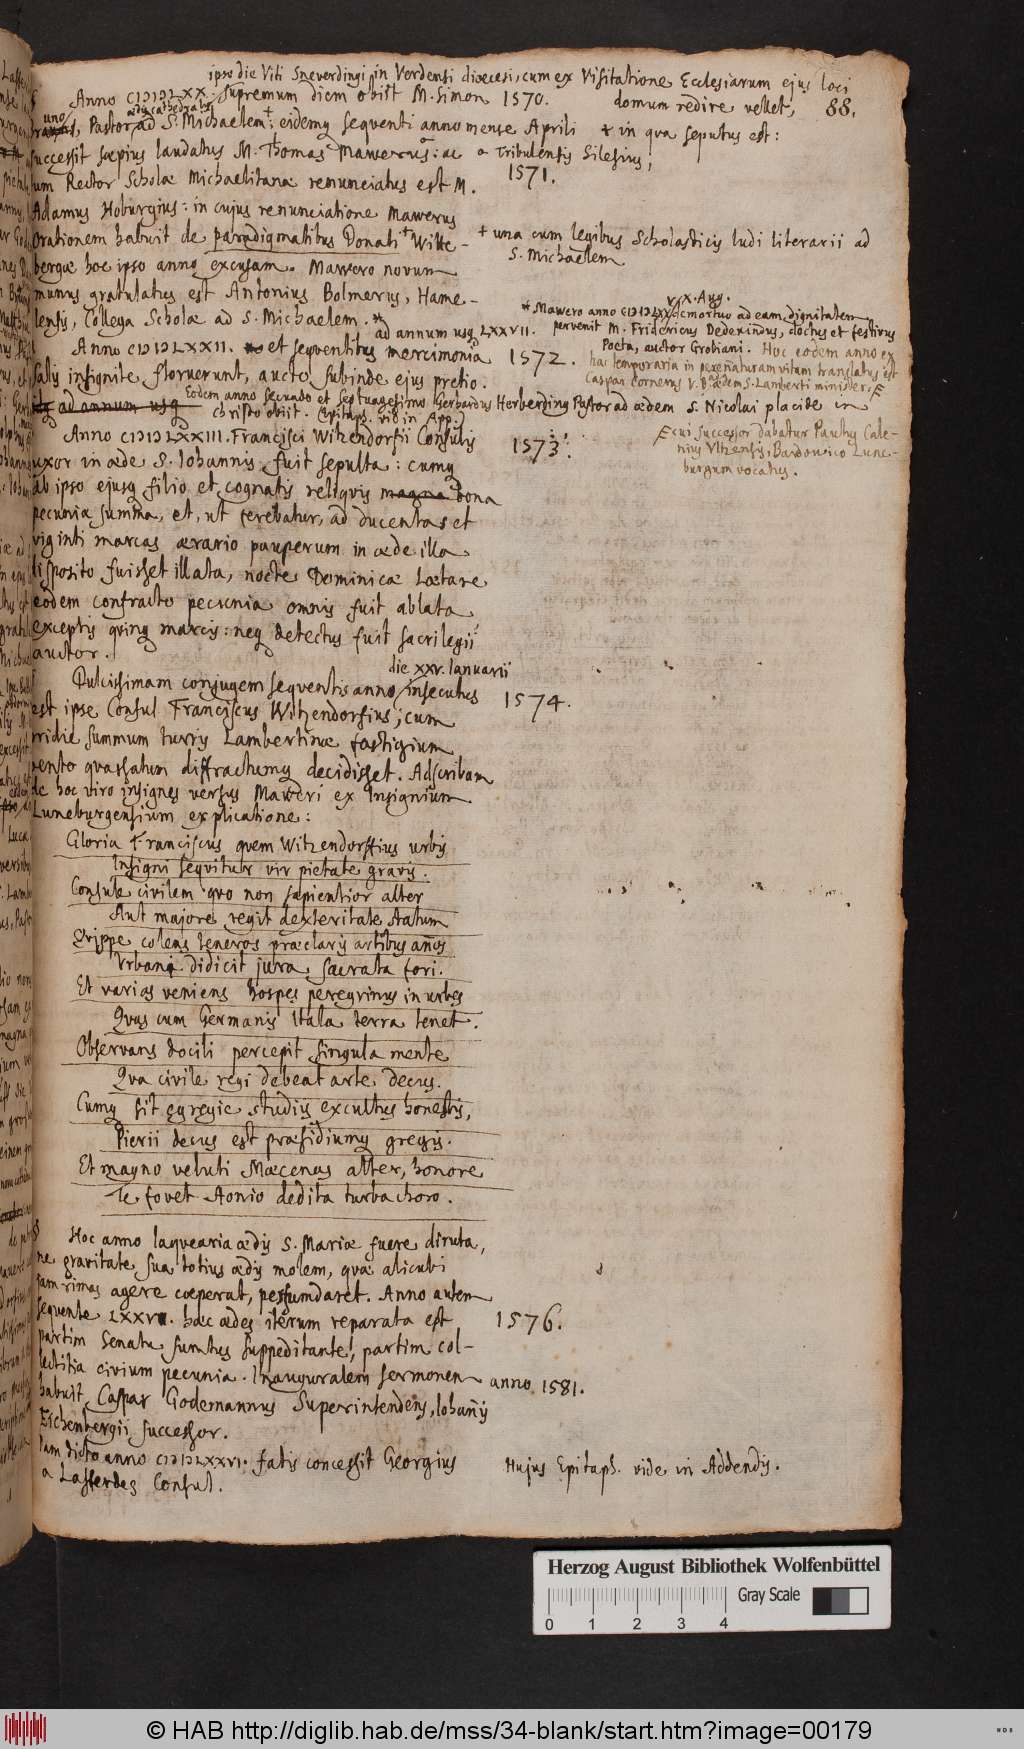 ipso die Viti Sneverdingi in Verdensi dioecesi, cum ex Visitatione Ecclesiarum ejus loci
Anno CIƆIƆLXX. supremum diem obiit M. Simon 1570. domum redire vellet, 88.
Pastor ad S. Michaelem: eidemq sequenti anno mense Aprili + in qua sepultus est:
successit saepius laudatus M. Thomas Mawerus: ac a Tribulensis Silesius,
tum Rector Scholae Michaelitanae renunciatus est M. 1571.
Adamus Hoburgius: in cujus renunciatione Mawerus
Orationem habuit de paradigmatibus Donati + Witte- + una cum legibus Scholasticis ludi literarii ad
bergae hoc ipso anno excusam. Mawero novum S. Michaelem
munus gratulatus est Antonius Bolmerus, Hame- V. X. Aug.
lensis, Collega Scholae ad S. Michaelem. * * Mawero anno CIƆIƆLXX demortuo ad eam dignitatem
ad annum usq LXXVII. pervenit M. Fridericus Dedekindus, doctus et festivus
Anno CIƆIƆLXXII. et sequentibus mercimonia 1572. Poeta, auctor Grobiani. Hoc eodem anno ex
salis insignite floruerunt, aucto subinde ejus pretio. hac temporaria in perennaturam vitam translatus est
ad annum usq Caspar Cornerus V. D. aedem S. Lamberti minister.
Eodem anno secundo et septuagesimo Gerhardus Herberding Pastor ad aedem S. Nicolai placide in
Christo obiit. Epitaph. vid. in App.
Anno CIƆIƆLXXIII. Francisci Witzendorfii Consulis 1573. cui successor dabatur Paulus Cale-
uxor in aede S. Iohannis fuit sepulta: cumq nius Vltzensis, Bardovico Lune-
ab ipso ejusq filio et cognatis reliquis magna dona burgum vocatus.
pecunia summa, et, ut ferebatur, ad ducentas et
viginti marcas aerario pauperum in aede illa
disposito fuisset illata, nocte Dominicae Laetare
eodem confracto pecunia omnis fuit ablata
exceptis quinq marcis: neq detectus fuit sacrilegii
auctor.
die XXV. Ianuarii
Dulcissimam conjugem sequentis anno insecutus 1574.
est ipse Consul Franciscus Witzendorfius, cum
pridie summum turris Lambertinae fastigium
vento quassatum diffractumq decidisset. Adscribam
de hoc viro insignes versus Maweri ex Insignium
Luneburgensium explicatione:
Gloria Franciscus quem Witzendorffius urbis
Insigni sequitur vir pietate gravis.
Consule civilem quo non sapientior alter
Aut majore regit dexteritate statum
Quippe colens teneros praeclaris artibus annos
Vrbani didicit jura sacrata fori.
Et varias veniens hospes peregrinus in urbes
Quas cum Germanis Itala terra tenet.
Observans docili percepit singula mente
Qua civile regi debeat arte decus.
Cumq sit egregie studiis excultus honestis,
Pierii decus est praesidiumq gregis.
Et magno veluti Maecenas alter, honore
Te fovet Aonio dedita turba choro.
Hoc anno laquearia aedis S. Mariae fuere diruta,
ne gravitate sua totius aedis molem, quae alicubi
jam rimas agere coeperat, pessumdaret. Anno autem
sequente LXXVI. haec aedes iterum reparata est 1576.
partim Senatu sumtus suppeditante, partim col-
lectitia civium pecunia. Inauguralem sermonem anno 1581.
habuit Caspar Godemannus Superintendens, Iohannis
Eichenbergii successor.
Iam dicto anno CIƆIƆLXXVI. fatis concessit Georgius Hujus Epitaph. vide in Addendis.
a Lafferdes Consul.
Herzog August Bibliothek Wolfenbüttel
Gray Scale
0 1 2 3 4
© HAB http://diglib.hab.de/mss/34-blank/start.htm?image=00179